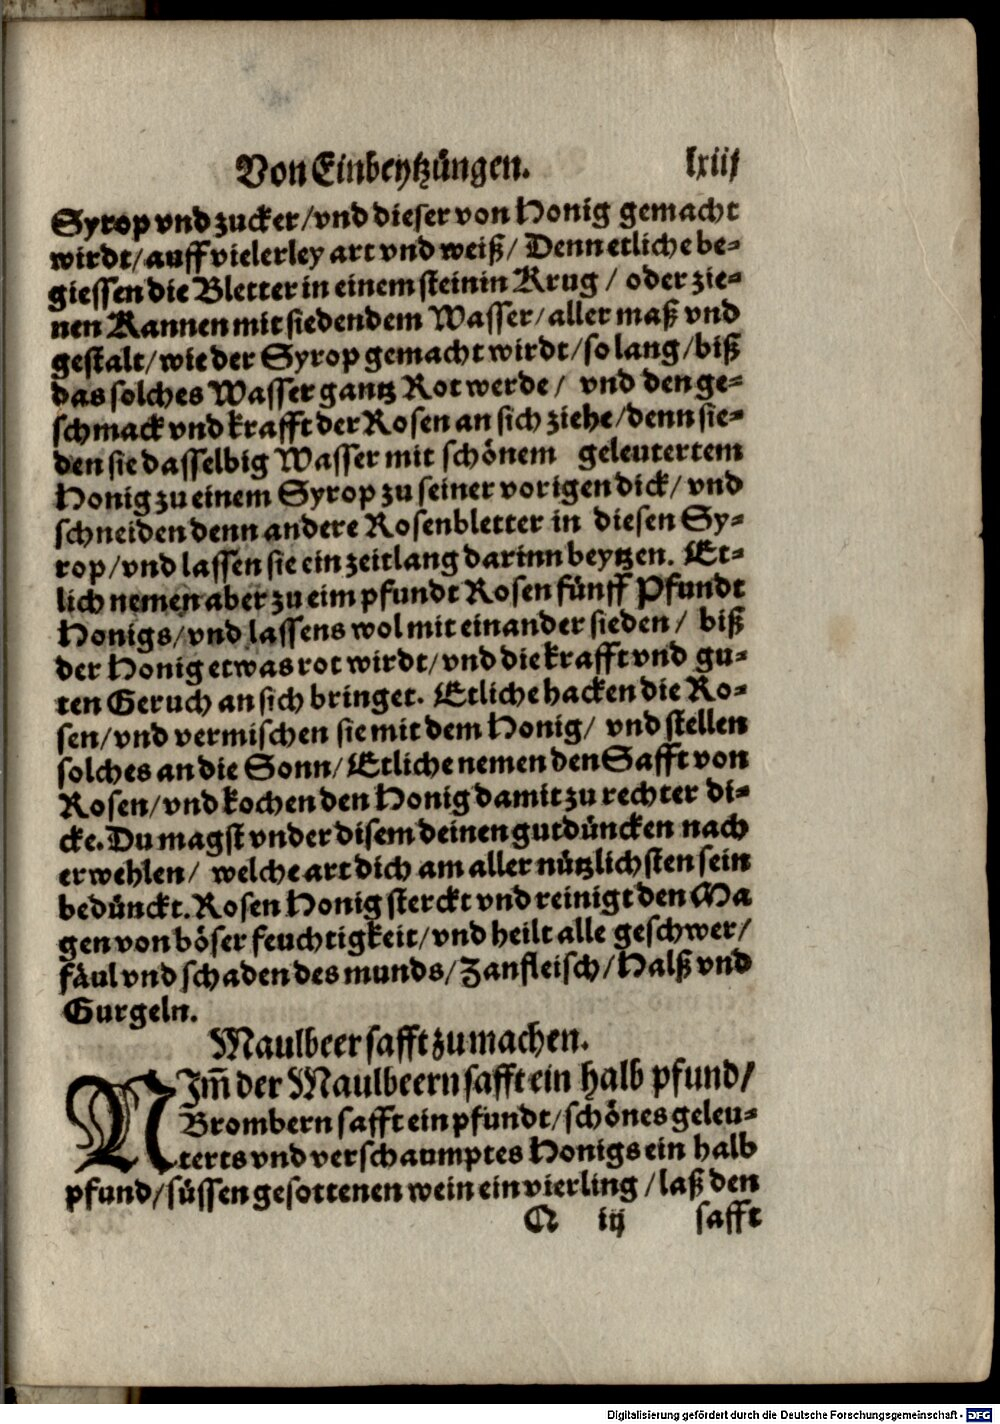 Von Einbeytzüngen. lxiij
Syrop vnd zucker/vnd dieser von Honig gemacht
wirdt/auff vielerley art vnd weiß/ Denn etliche be-
giessen die Bletter in einem steinin Krug / oder zie-
nen Kannen mit siedendem Wasser/aller maß vnd
gestalt/wie der Syrop gemacht wirdt/so lang/biß
das solches Wasser gantz Rot werde/ vnd den ge-
schmack vnd krafft der Rosen an sich ziehe/denn sie-
den sie dasselbig Wasser mit schönem geleutertem
Honig zu einem Syrop zu seiner vorigen dick/ vnd
schneiden denn andere Rosenbletter in diesen Sy-
rop/vnd lassen sie ein zeitlang darinn beytzen. Et-
lich nemen aber zu eim pfundt Rosen fünff Pfundt
Honigs/vnd lassens wol mit einander sieden/ biß
der Honig etwas rot wirdt/vnd die krafft vnd gu-
ten Geruch an sich bringet. Etliche hacken die Ro-
sen/vnd vermischen sie mit dem Honig/ vnd stellen
solches an die Sonn/Etliche nemen den Safft von
Rosen/vnd kochen den Honig damit zu rechter di-
cke. Du magst vnder disem deinen gutdüncken nach
erwehlen/ welche art dich am aller nützlichsten sein
bedünckt. Rosen Honig sterckt vnd reinigt den Ma
gen von böser feuchtigkeit/vnd heilt alle geschwer/
fäul vnd schaden des munds/Zanfleisch/Halß vnd
Gurgeln.
Maulbeer safft zu machen.
NIm̄ der Maulbeern safft ein halb pfund/
Brombern safft ein pfundt/schönes geleu-
terts vnd verschaumptes Honigs ein halb
pfund/süssen gesottenen wein ein vierling /laß den
N iij safft
Digitalisierung gefördert durch die Deutsche Forschungsgemeinschaft - DFG